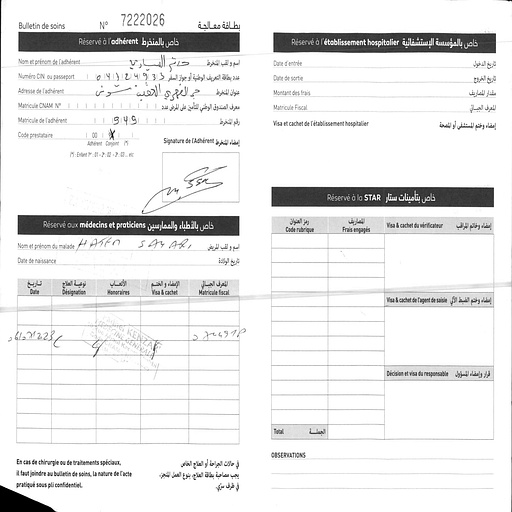 Bulletin de soins N° 7222026 بطاقة معالجة
Réservé à l'adhérent خاص بالمنخرط
Nom et prénom de l'adhérent اسم و لقب المنخرط
Numéro CIN ou passeport عدد بطاقة التعريف الوطنية أو جواز السفر
Adresse de l'adhérent عنوان المنخرط
Matricule CNAM N° معرف الصندوق الوطني للتأمين على المرض عدد
Matricule de l'adhérent 949 رقم المنخرط
Code prestataire 00 X
Adhérent Conjoint (*)
(*) : Enfant 1er : 01 - 2e : 02 - 3e : 03 ... etc
Signature de l'Adhérent إمضاء المنخرط
Réservé aux médecins et praticiens خاص بالأطباء والممارسين
Nom et prénom du malade HATEM اسم و لقب المريض
Date de naissance تاريخ الولادة
تاريخ نوعية العلاج الأتعاب الإمضاء و الختم المعرف الجبائي
Date Désignation Honoraires Visa & cachet Matricule fiscal
En cas de chirurgie ou de traitements spéciaux,
il faut joindre au bulletin de soins, la nature de l'acte
pratiqué sous pli confidentiel.
في حالات الجراحة أو العلاج الخاص
يجب مصاحبة بطاقة العلاج، بنوع العمل المنجز،
في ظرف سري.
Réservé à l'établissement hospitalier خاص بالمؤسسة الإستشفائية
Date d'entrée تاريخ الدخول
Date de sortie تاريخ الخروج
Montant des frais مقدار المصاريف
Matricule Fiscal المعرف الجبائي
Visa et cachet de l'établissement hospitalier إمضاء وختم المستشفى أو المصحة
Réservé à la STAR خاص بتأمينات ستار
رمز العنوان المصاريف
Code rubrique Frais engagés
Visa & cachet du vérificateur إمضاء وخاتم المراقب
Visa & cachet de l'agent de saisie إمضاء وختم الضبط الآلي
Décision et visa du responsable قرار وإمضاء المسؤول
Total الجملة
OBSERVATIONS